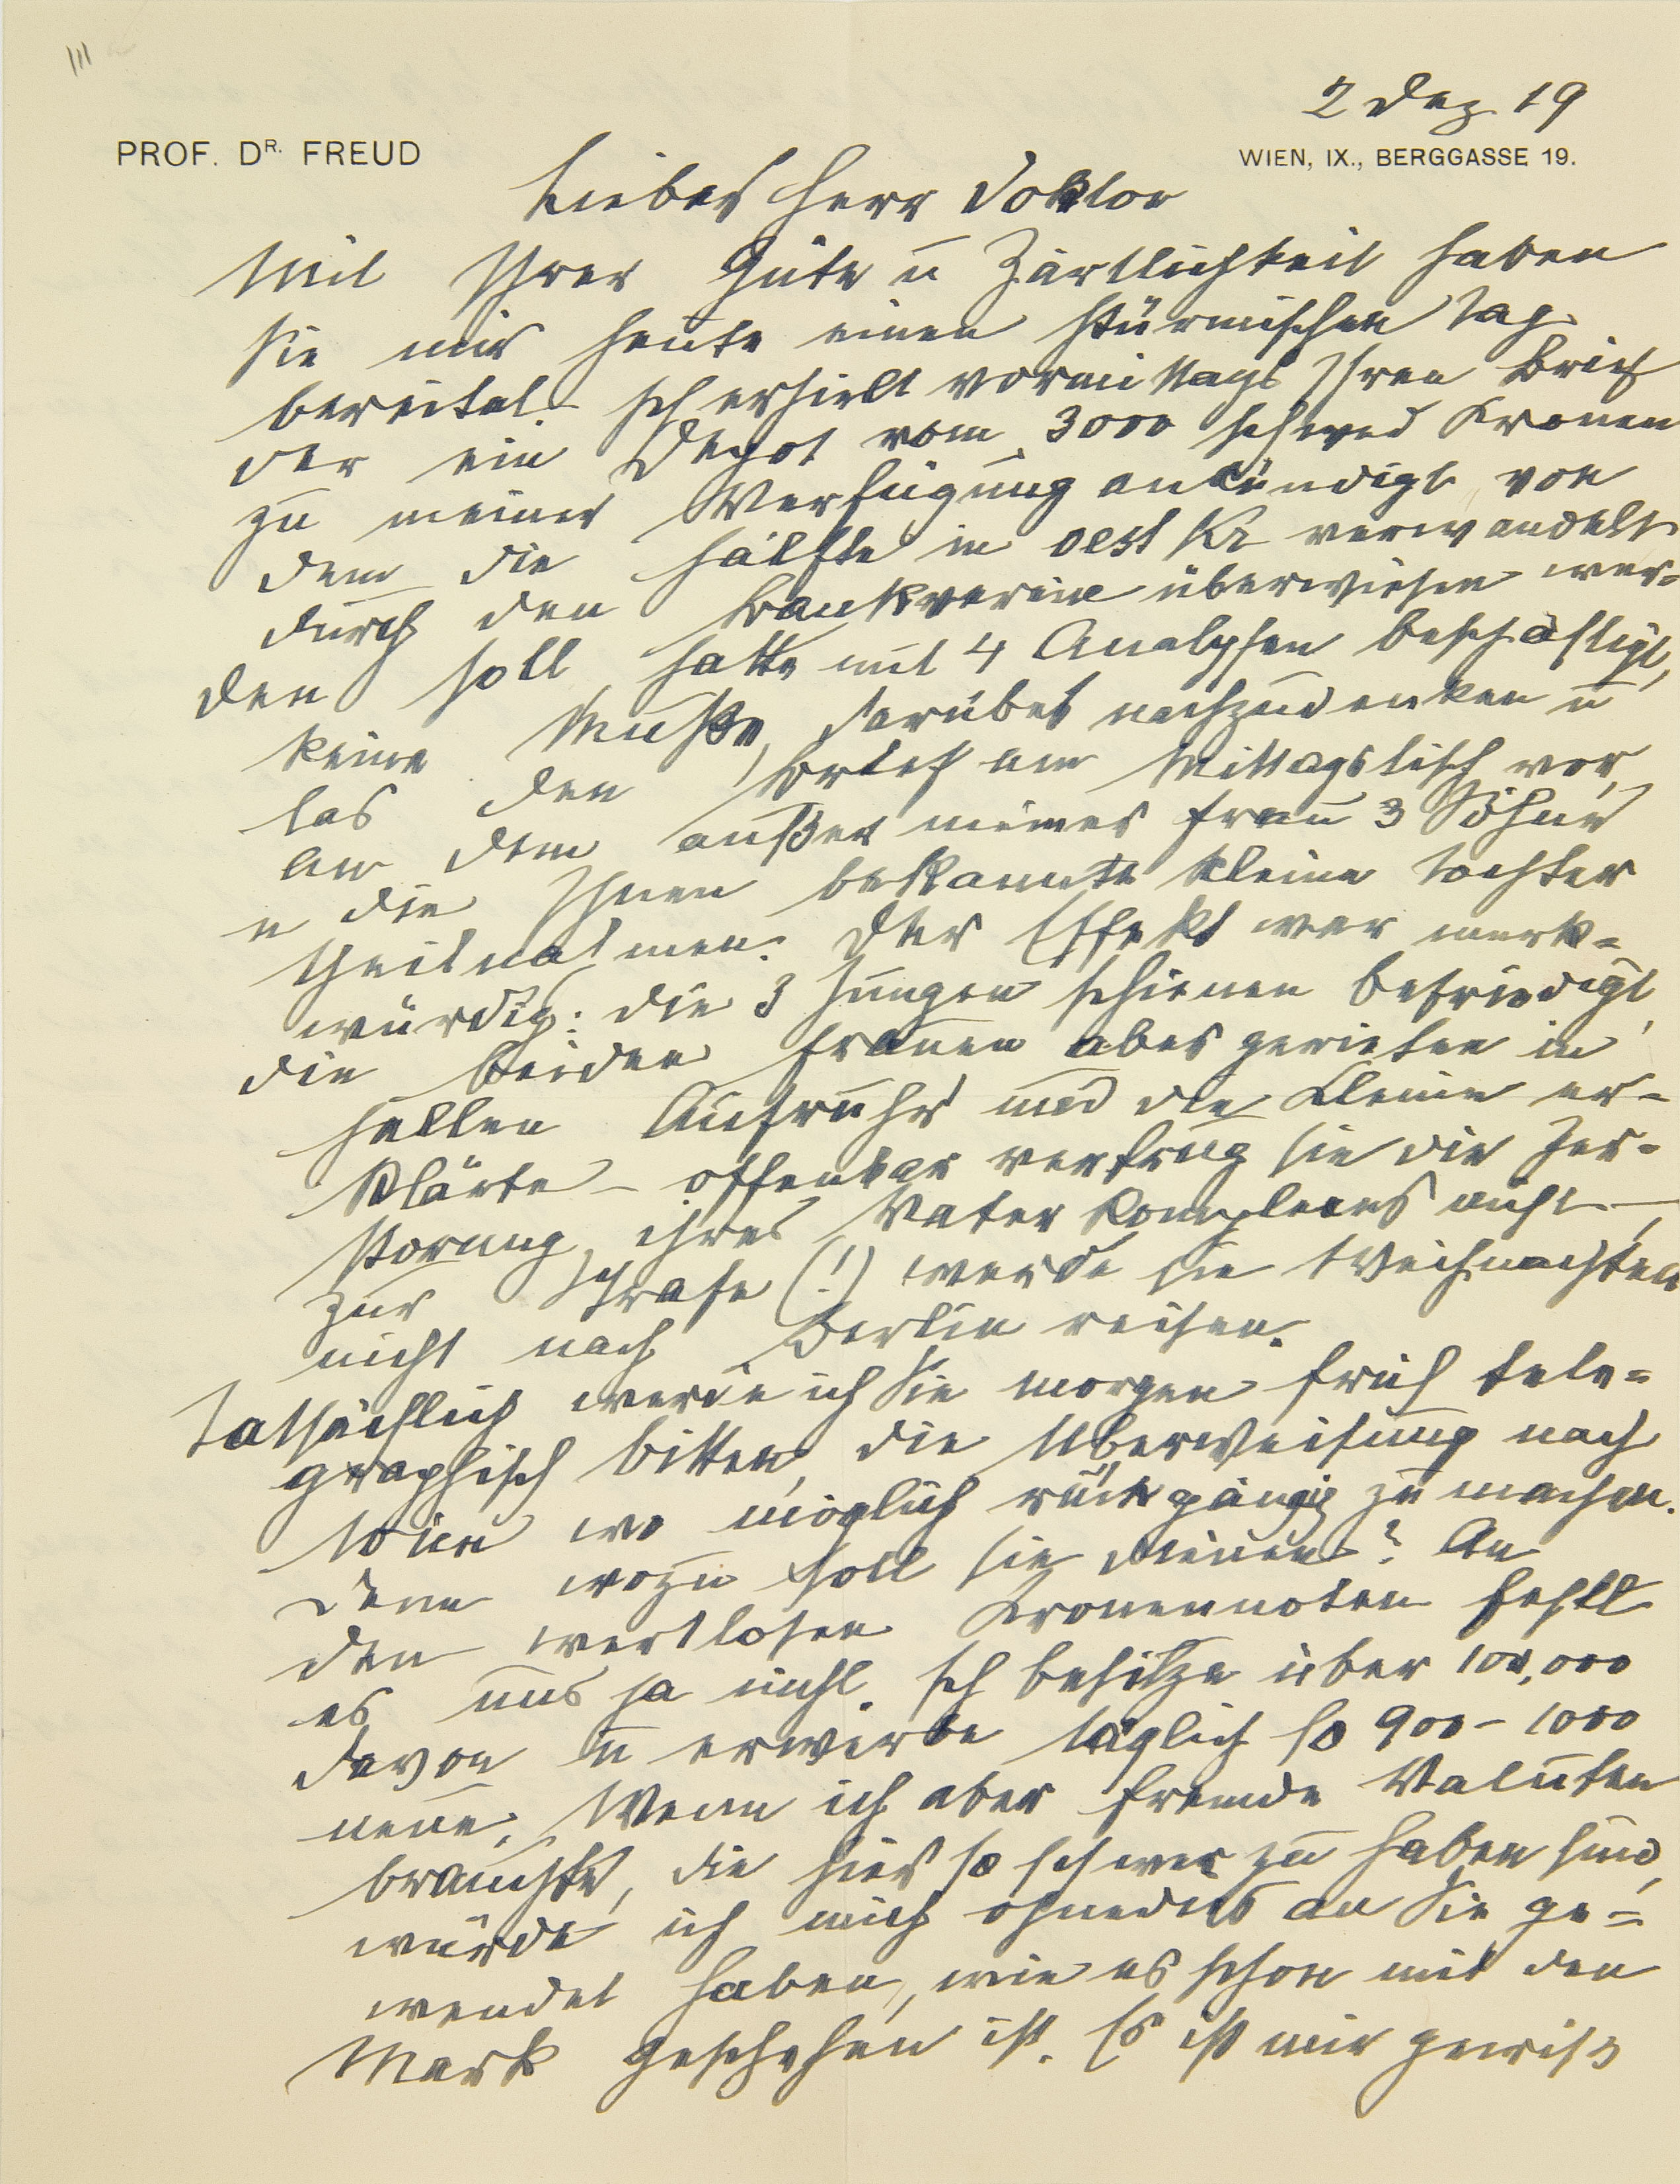 2 Dez 19
PROF. DR. FREUD
WIEN, IX., BERGGASSE 19.
Lieber Herr Doktor
Mit Ihrer Güte u Zärtlichkeit haben
Sie mir heute einen stürmischen Tag
bereitet. Ich erhielt vormittags Ihren Brief
der ein Depot vom 3000 schwed Kronen
zu meiner Verfügung ankündigt von
dem die Hälfte in oest Kr verwandelt
durch den Bankverein überwiesen wer-
den soll, hatte mit 4 Analysen beschäftigt,
keine Muße, darüber nachzudenken u
las den Brief am Mittagstisch vor,
an dem außer meiner Frau 3 Söhne
u die Ihnen bekannte kleine Tochter
theilnahmen. Der Effekt war merk-
würdig: die 3 Jungen schienen befriedigt,
die beiden Frauen aber gerieten in
hellen Aufruhr und die Kleine er-
klärte – offenbar vertrug sie die Zer-
störung ihres Vaterkomplexes nicht –,
zur Strafe (!) werde sie Weihnachten
nicht nach Berlin reisen.
Tatsächlich werde ich Sie morgen früh tele-
graphisch bitten, die Überweisung nach
Wien wo möglich rückgängig zu machen.
Denn wozu soll sie dienen? An
den wertlosen Kronennoten fehlt
es uns ja nicht. Ich besitze über 100,000
davon u erwerbe täglich so 900 – 1000
neue. Wenn ich aber fremde Valuten
brauchte, die hier so schwer zu haben sind,
würde ich mich ohnedies an Sie ge-
wendet haben, wie es schon mit den
Mark geschehen ist. Es ist mir gewiss